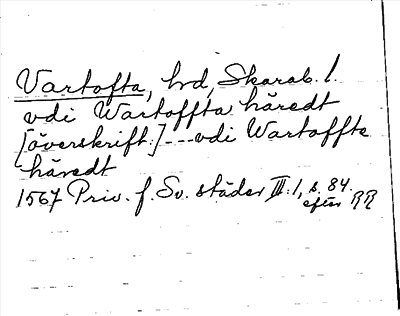 Vartofta, hd, Skarab. l.
vdi Wartoffta häredt
[överskrift.] --- vdi Wartoffta
häredt
1567 Priv. f. Sv. städer III:1, s. 84.
efter RR